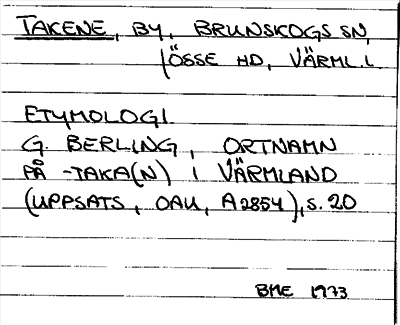 TAKENE, BY, BRUNSKOGS SN,
JÖSSE HD, VÄRML.L.
ETYMOLOGI.
G. BERLING, ORTNAMN
PÅ -TAKA(N) I VÄRMLAND
(UPPSATS, OAU, A2854), S. 20
BME 1973